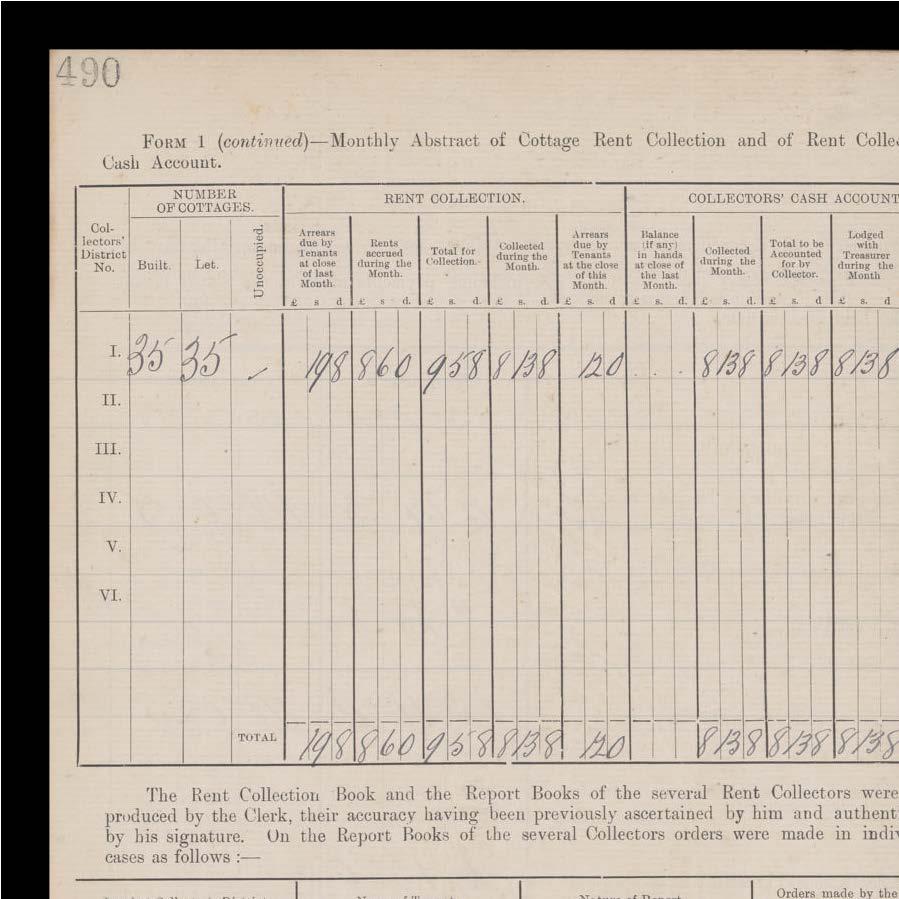 490
FORM 1 (continued)—Monthly Abstract of Cottage Rent Collection and of Rent Collec
Cash Account.
NUMBER OF COTTAGES. RENT COLLECTION. COLLECTORS' CASH ACCOUNT
Col-
lectors'
District
No.
Built.
Let.
Unoccupied.
Arrears
due by
Tenants
at close
of last
Month.
Rents
accrued
during the
Month.
Total for
Collection.
Collected
during the
Month.
Arrears
due by
Tenants
at the close
of this
Month.
Balance
(if any)
in hands
at close of
the last
Month.
Collected
during the
Month.
Total to be
Accounted
for by
Collector.
Lodged
with
Treasurer
during the
Month
£ s d £ s d. £ s. d. £ s. d. £ s. d. £ s. d. £ s. d. £ s. d £ s. d
I. 35 35 – 19 8 8 6 0 9 5 8 8 13 8 12 0 . . . 8 13 8 8 13 8 8 13 8
II.
III.
IV.
V.
VI.
TOTAL 19 8 8 6 0 9 5 8 8 13 8 12 0 8 13 8 8 13 8 8 13 8
The Rent Collection Book and the Report Books of the several Rent Collectors were
produced by the Clerk, their accuracy having been previously ascertained by him and authent
by his signature. On the Report Books of the several Collectors orders were made in indiv
cases as follows :—
Orders made by the